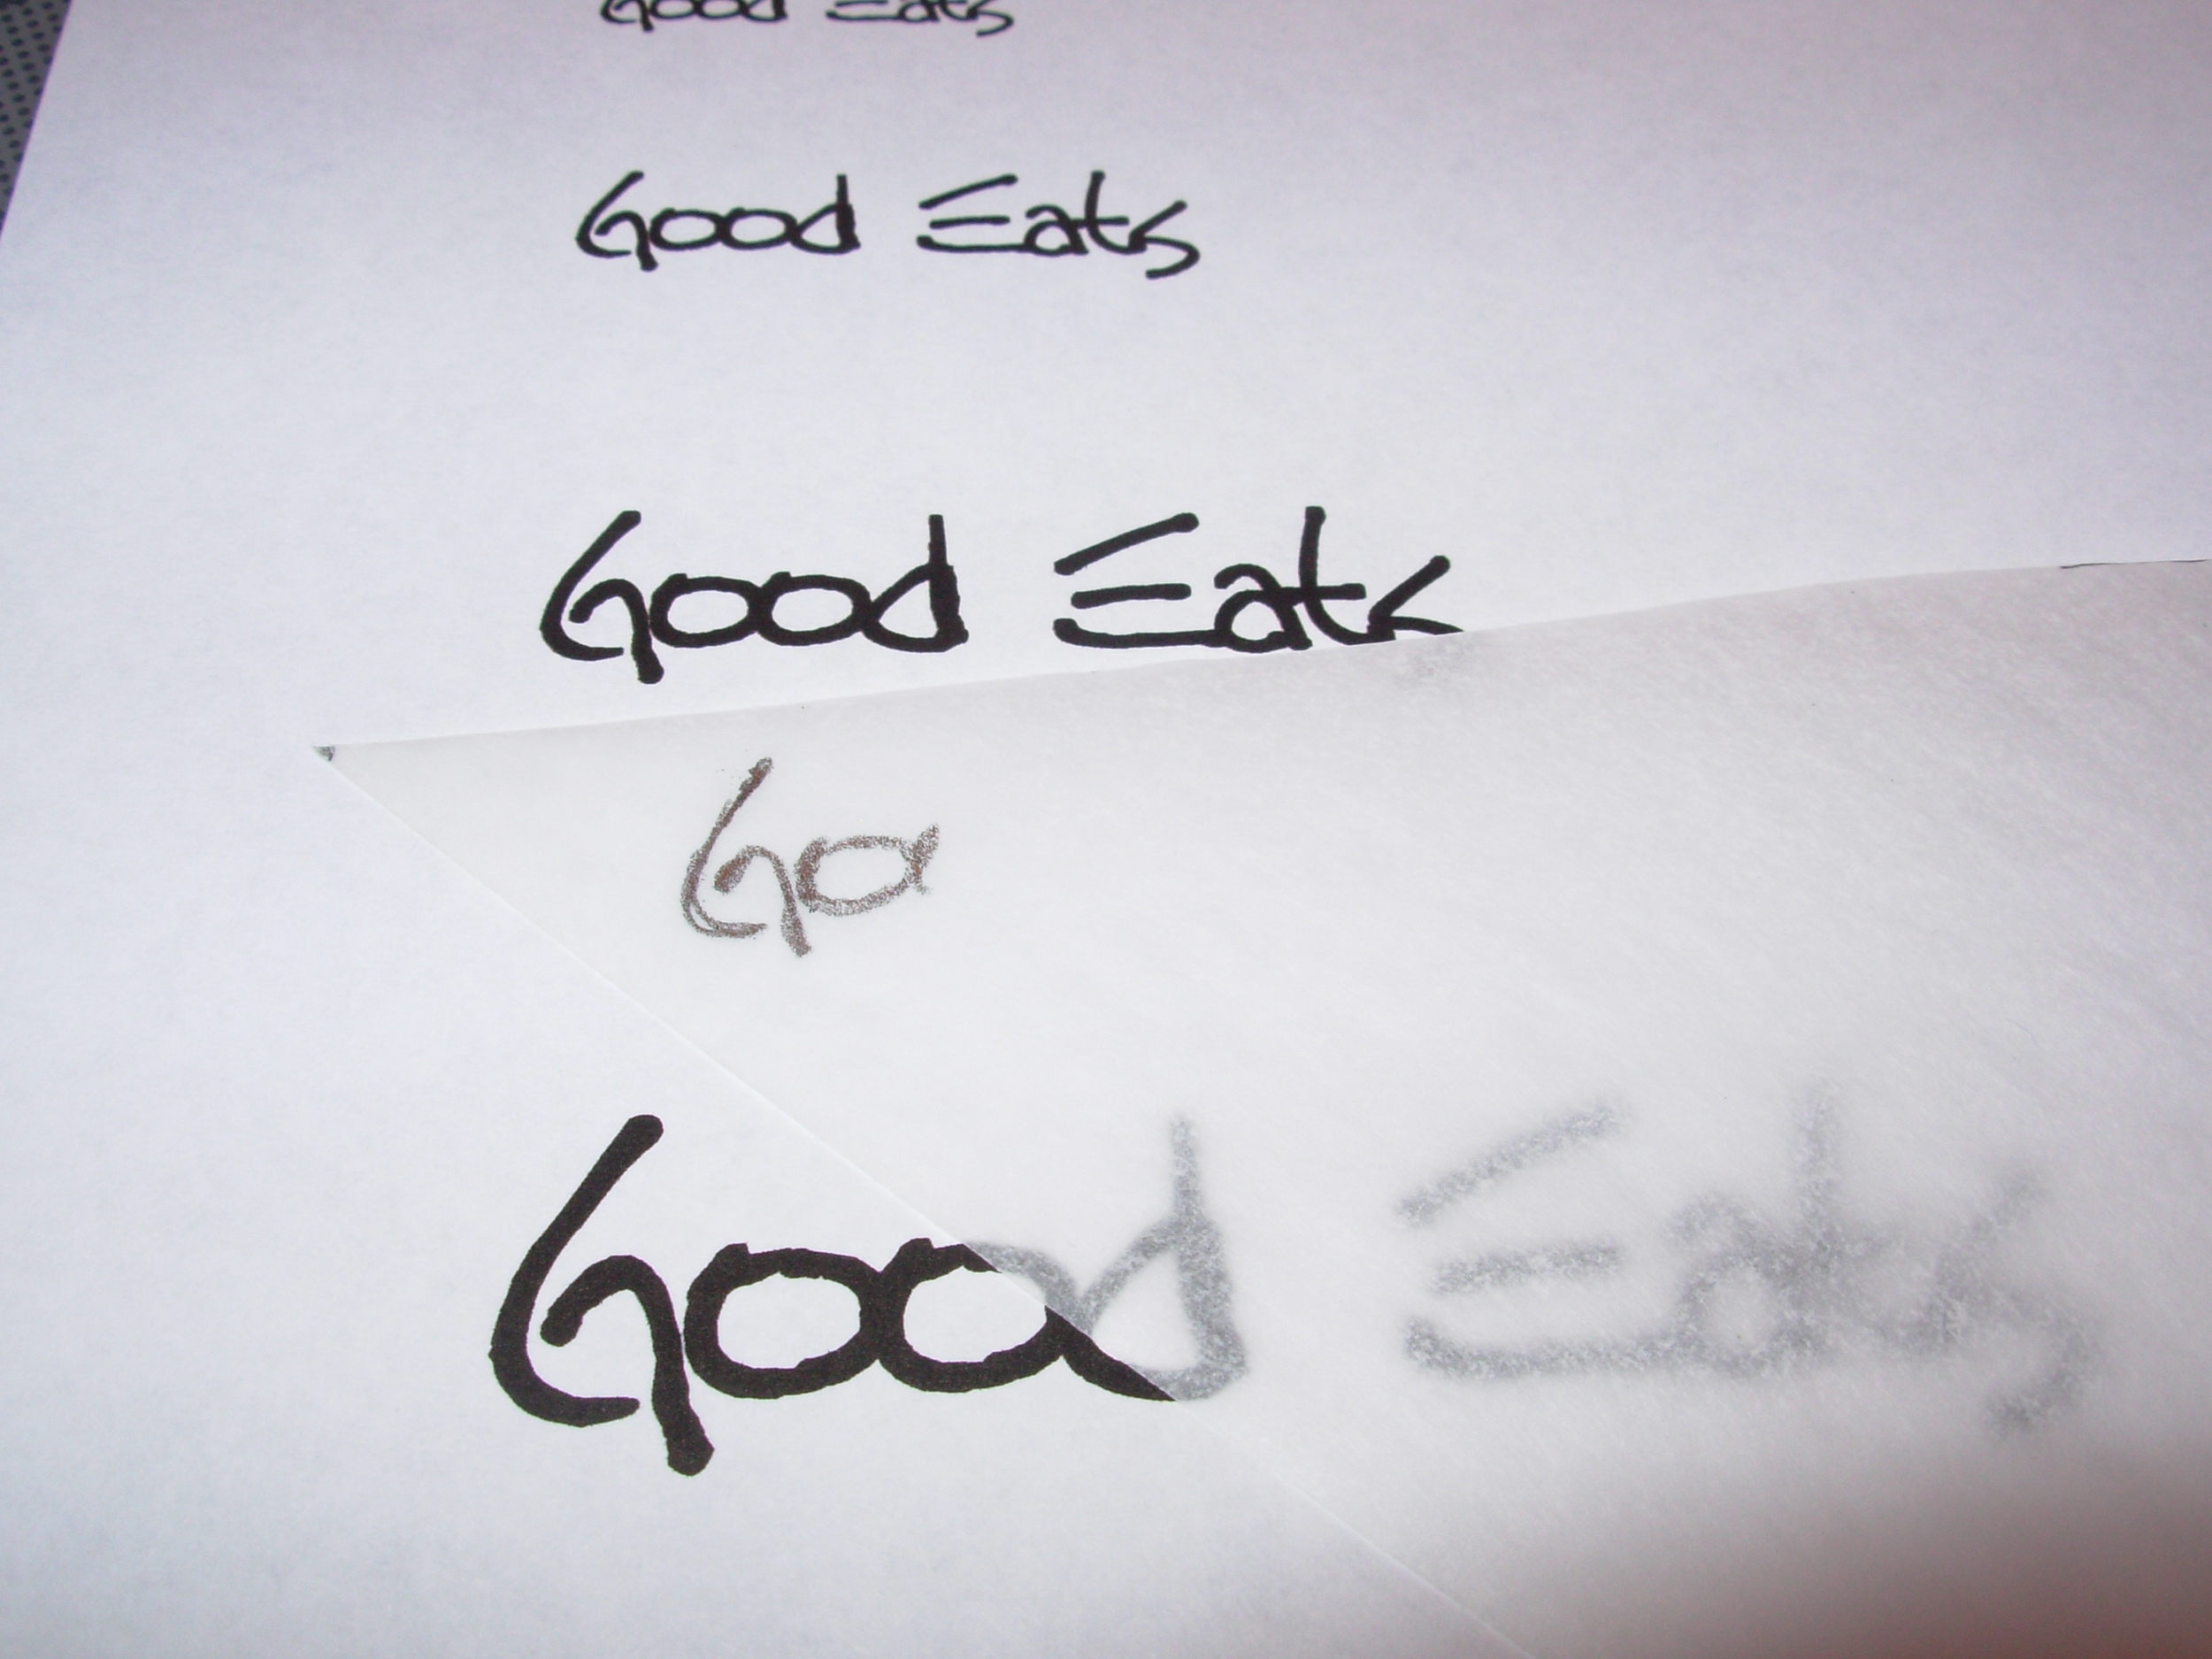 Good Eats
Good Eats
Good Eats
Go
Good Eats